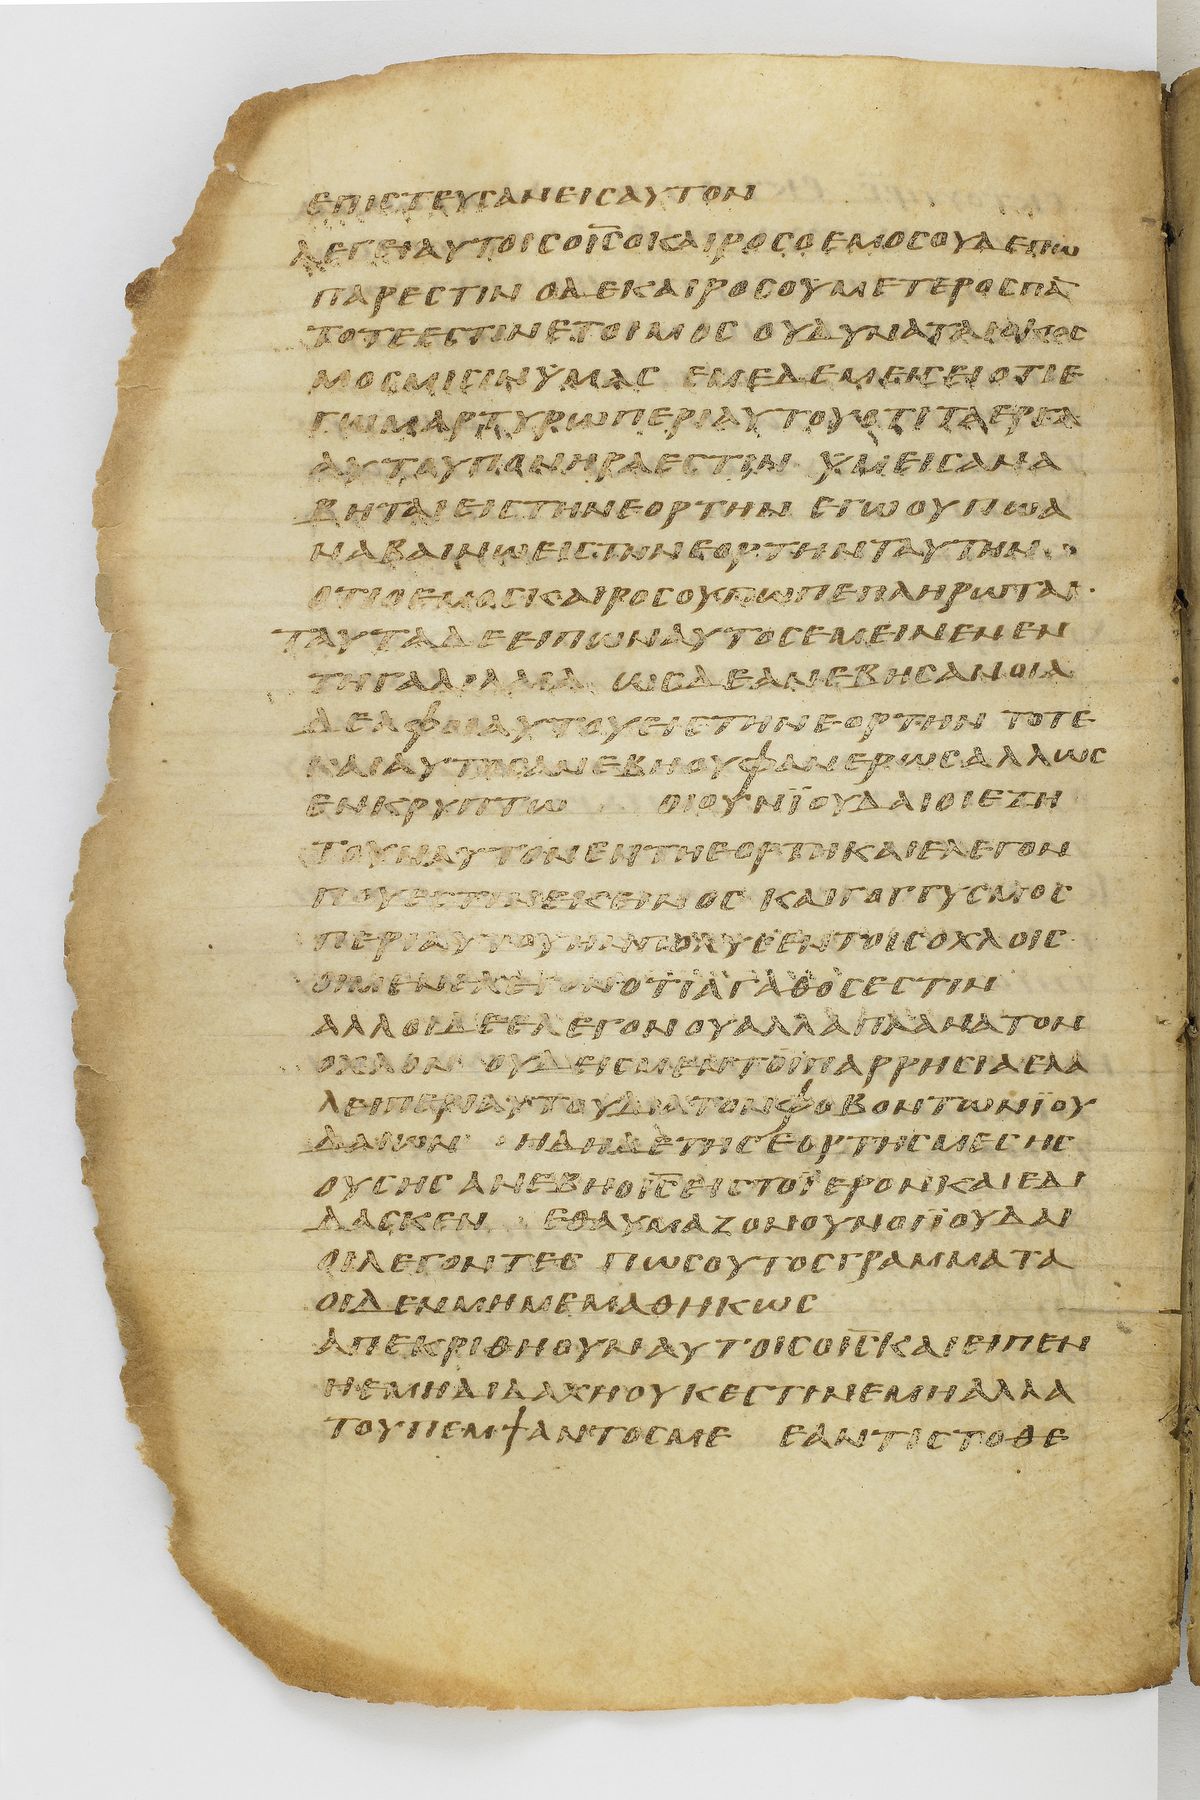 ΕΠΙϹΤΕΥϹΑΝΕΙϹΑΥΤΟΝ
ΛΕΓΕΙΑΥΤΟΙϹΟΙ̅Ϲ̅ΟΚΑΙΡΟϹΟΕΜΟϹΟΥΔΕΠΩ
ΠΑΡΕϹΤΙΝ ΟΔΕΚΑΙΡΟϹΟΥΜΕΤΕΡΟϹΠΑ
ΤΟΤΕΕϹΤΙΝΕΤΟΙΜΟϹ ΟΥΔΥΝΑΤΑΙΟΚΟϹ
ΜΟϹΜΙϹΙΝΫΜΑϹ ΕΜΕΔΕΜΕΙϹΕΙΟΤΙΕ
ΓΩΜΑΡΤΥΡΩΠΕΡΙΑΥΤΟΥΟΤΙΤΑΕΡΓΑ
ΑΥΤΟΥΠΟΝΗΡΑΕϹΤΙΝ ΥΜΕΙϹΑΝΑ
ΒΗΤΑΙΕΙϹΤΗΝΕΟΡΤΗΝ ΕΓΩΟΥΠΩΑ
ΝΑΒΑΙΝΩΕΙϹΤΗΝΕΟΡΤΗΝΤΑΥΤΗΝ
ΟΤΙΟΕΜΟϹΚΑΙΡΟϹΟΥΠΩΠΕΠΛΗΡΩΤΑΙ·
ΤΑΥΤΑΔΕΕΙΠΩΝΑΥΤΟϹΕΜΕΙΝΕΝΕΝ
ΤΗΓΑΛΙΛΑΙΑ ΩϹΔΕΑΝΕΒΗϹΑΝΟΙΑ
ΔΕΛΦΟΙΑΥΤΟΥΕΙϹΤΗΝΕΟΡΤΗΝ ΤΟΤΕ
ΚΑΙΑΥΤΟϹΑΝΕΒΗΟΥΦΑΝΕΡΩϹΑΛΛΩϹ
ΕΝΚΡΥΠΤΩ ΟΙΟΥΝΪΟΥΔΑΙΟΙΕΖΗ
ΤΟΥΝΑΥΤΟΝΕΝΤΗΕΟΡΤΗΚΑΙΕΛΕΓΟΝ
ΠΟΥΕϹΤΙΝΕΚΕΙΝΟϹ ΚΑΙΓΟΓΓΥϹΜΟϹ
ΠΕΡΙΑΥΤΟΥΗΝΠΟΛΥϹΕΝΤΟΙϹΟΧΛΟΙϹ
ΟΙΜΕΝΕΛΕΓΟΝΟΤΙΑΓΑΘΟϹΕϹΤΙΝ
ΑΛΛΟΙΔΕΕΛΕΓΟΝΟΥΑΛΛΑΠΛΑΝΑΤΟΝ
ΟΧΛΟΝ ΟΥΔΕΙϹΜΕΝΤΟΙΠΑΡΡΗϹΙΑΕΛΑ
ΛΕΙΠΕΡΙΑΥΤΟΥΔΙΑΤΟΝΦΟΒΟΝΤΩΝΪΟΥ
ΔΑΙΩΝ ΗΔΗΔΕΤΗϹΕΟΡΤΗϹΜΕϹΗϹ
ΟΥϹΗϹΑΝΕΒΗΟΙ̅Ϲ̅ΕΙϹΤΟΪΕΡΟΝΚΑΙΕΔΙ
ΔΑϹΚΕΝ ΕΘΑΥΜΑΖΟΝΟΥΝΟΙΪΟΥΔΑΙ
ΟΙΛΕΓΟΝΤΕϹ ΠΩϹΟΥΤΟϹΓΡΑΜΜΑΤΑ
ΟΙΔΕΝΜΗΜΕΜΑΘΗΚΩϹ
ΑΠΕΚΡΙΘΗΟΥΝΑΥΤΟΙϹΟΙ̅Ϲ̅ΚΑΙΕΙΠΕΝ
ΗΕΜΗΔΙΔΑΧΗΟΥΚΕϹΤΙΝΕΜΗΑΛΛΑ
ΤΟΥΠΕΜΨΑΝΤΟϹΜΕ ΕΑΝΤΙϹΤΟΘΕ